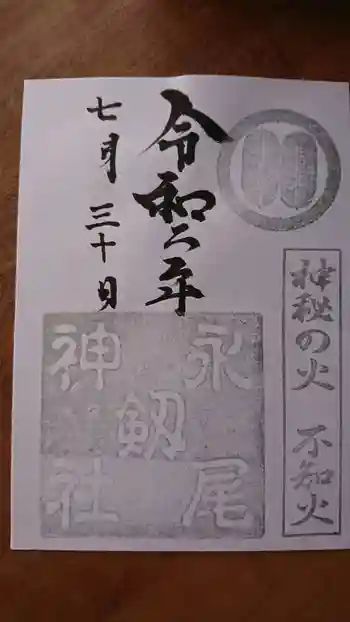 神秘の火 不知火
令和二年
七月三十日
永尾
剱
神社